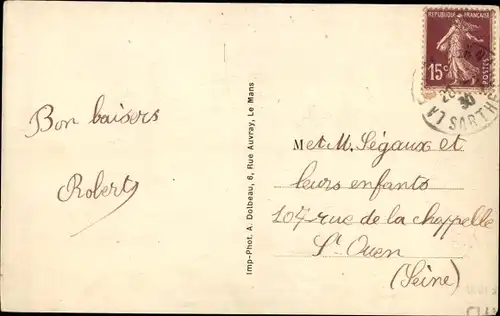 Bon baisers
Robert
Imp-Phot. A. Dolbeau, 6, Rue Auvray, Le Mans
REPUBLIQUE FRANÇAISE
15c
POSTES
30
LA SARTHE
M et M. Ségaux et
leurs enfants
104 rue de la chappelle
St Ouen
(Seine)